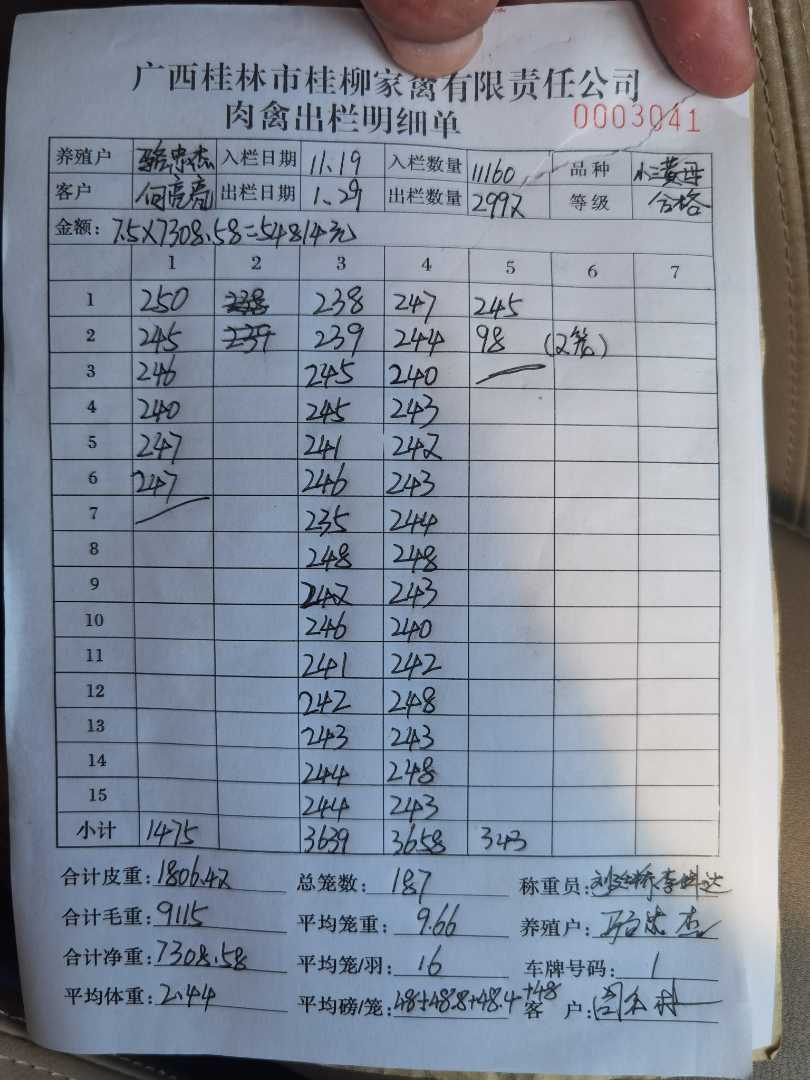 广西桂林市桂柳家禽有限责任公司
肉禽出栏明细单 0003041
养殖户 骆忠杰 入栏日期 11.19 入栏数量 11160 品种 小三黄母
客户 何亮亮 出栏日期 1.29 出栏数量 2992 等级 合格
金额: 7.5×7308.58=54814元
1 2 3 4 5 6 7
1 250 238 238 247 245
2 245 239 239 244 98 (2笼)
3 246 245 240
4 240 245 243
5 247 241 242
6 247 246 243
7 235 244
8 248 248
9 242 243
10 246 240
11 241 242
12 242 248
13 243 243
14 244 248
15 244 243
小计 1475 3639 3658 343
合计皮重: 1806.42 总笼数: 187 称重员:
合计毛重: 9115 平均笼重: 9.66 养殖户: 骆忠杰
合计净重: 7308.58 平均笼/羽: 16 车牌号码: 1
平均体重: 2.44 平均磅/笼: 48+48.8+48.4+48 客户: